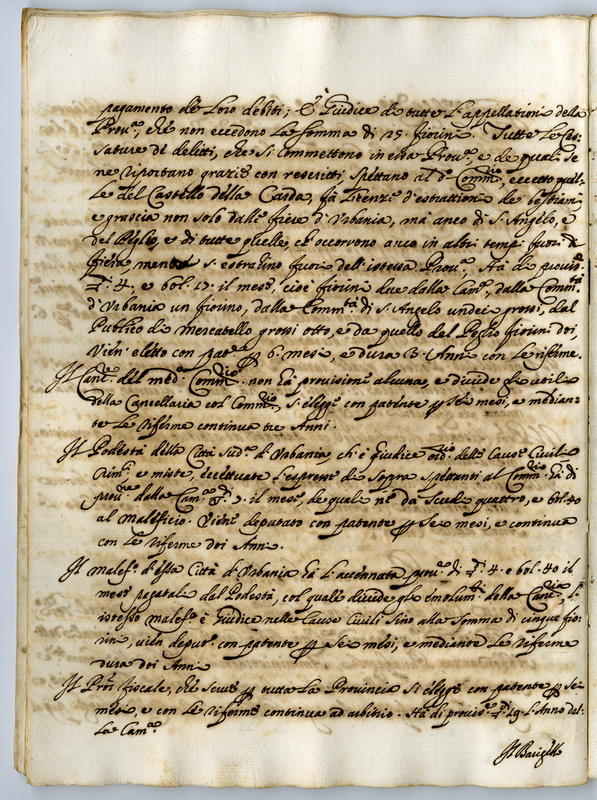 pagamento de loro debiti; È Giudice di tutte l'appellationi della
Prov.ª, che non eccedono la somma di 25. fiorini. Tutte le
sature di delitti, che si commettono in essa Prov.ª, e de quali se
ne riportano gratie con rescritti spettano al d.º Comm.rio, eccetto quel-
le del Castello della Carda, fà licenze d'estrattioni de bestiami
e grascia non solo dalle fiere d'Urbania, mà anco di S. Angelo, e
del Peglio, e di tutte quelle, ch'occorrono anco in altri tempi fuori di
fiera mentre s'estralino fuori dell'istessa Prov.ª, Hà di provis.ne
4. e bol. 17. il mese, cioè fiorini due dalla Cam.ª, dalla Comm.tà
d'Urbania un fiorino, dalla Comm.tà di S. Angelo undici grossi, dal
Publico di Mercatello grossi otto, e da quello del Peglio fiorini doi,
Vien' eletto con pat.e p 6. mesi, e dura 3. Anni con le riferme.
Il Canc.re del med.º Comm.rio non hà provisione alcuna, e divide gl'utili
della Cancellaria col Comm.rio, s'elegge con patente p sei mesi, e median-
te le riferme continua tre Anni.
Il Podestà della Città sud.ª d'Urbania, ch'è giudice ord.rio delle Cause Civili
Crim.li e miste, eccettuate l'espresse di sopra spettanti al Comm.rio hà di
prov.ne dalla Cam.ª 9. il mese, de quali ne dà scudi quattro, e bol. 40
al Maleficio. Viene deputato con patente p sei mesi, e continua
con le riferme doi Anni.
Il Malef.º d'essa Città d'Urbania hà l'accennata prov.ne di 4. e bol. 40 il
mese pagatali dal Podestà, col quale divide gl'emolum.ti della Canc.ria, l'
istesso malef.º è Giudice nelle Cause Civili sino alla somma di cinque fio-
rini, vien deput.º con patente p sei mesi, e mediante le riferme
dura doi Anni
Il Pro.r fiscale, che serve p tutta la Provincia si elegge con patente p sei
mesi, e con le riferme continua ad arbitrio. Hà di provis.ne 19. l'Anno dal-
la Cam.ª
Il Barigello